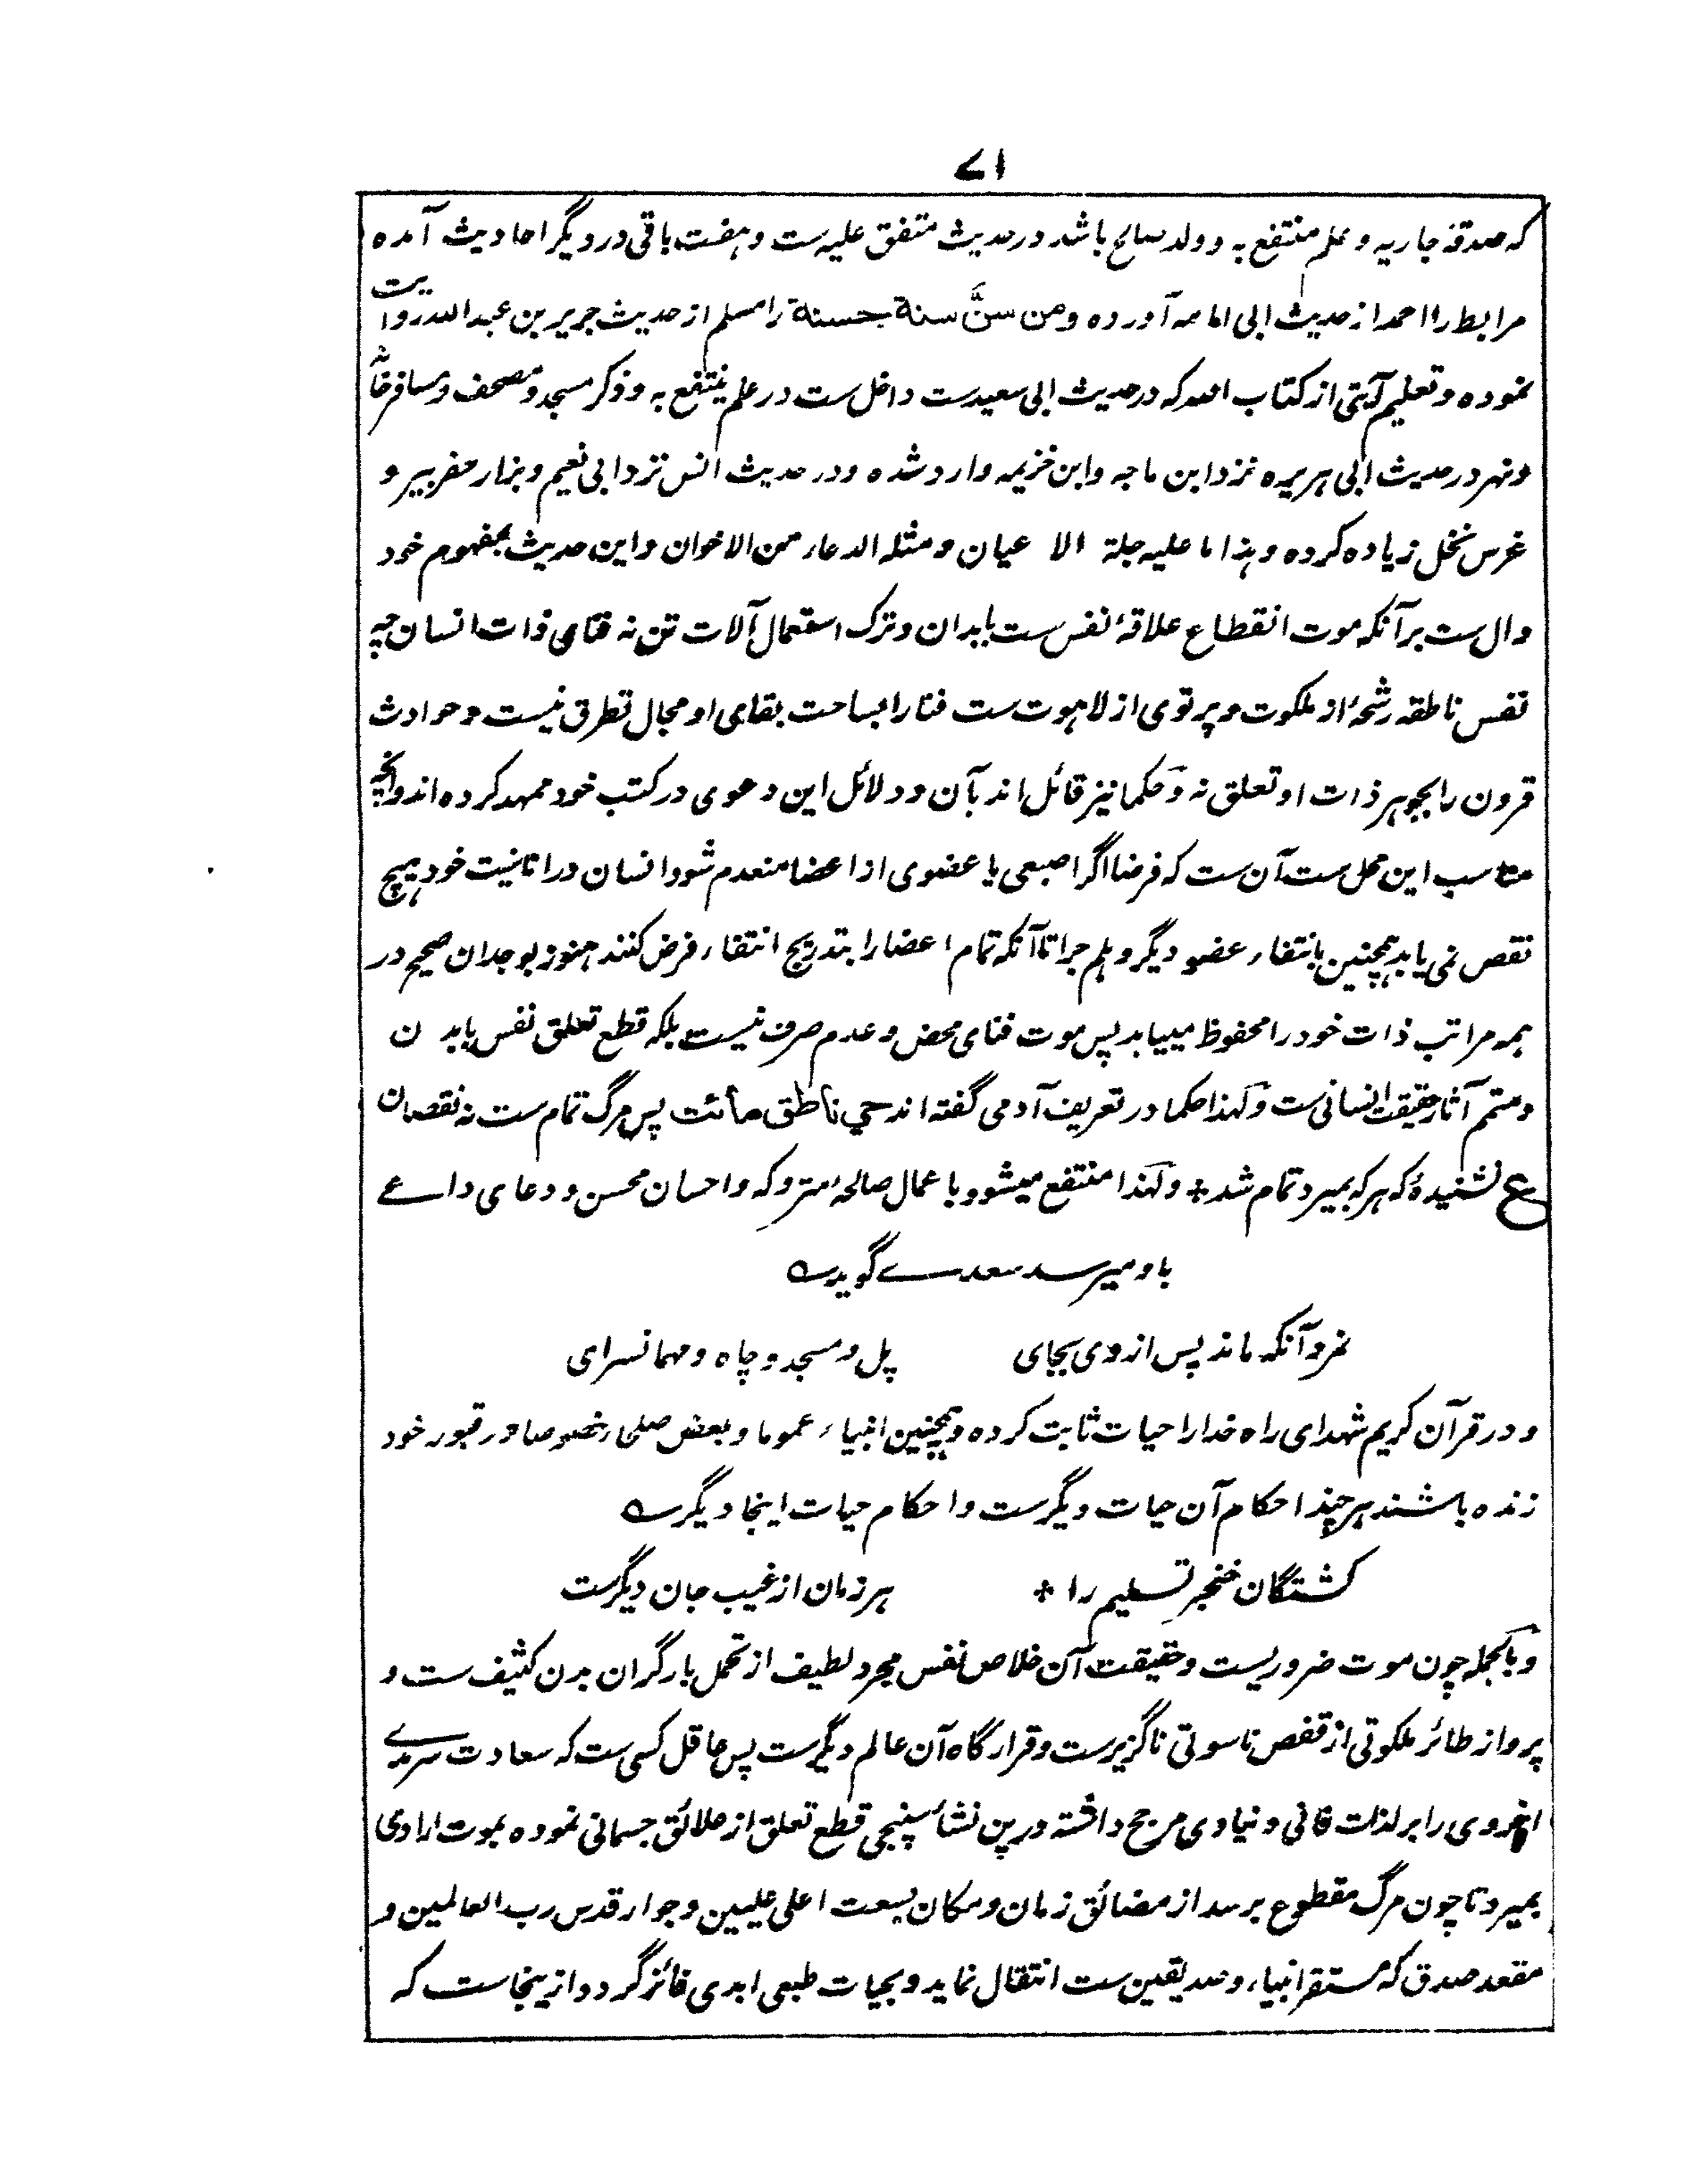 ۷۱
که صدقهٔ جاریه و علم منتفع به و ولد صالح باشد در حدیث متفق علیه ست و هفت باقی در دیگر احادیث آمده
مرابط را احمد از حدیث ابی امامه آورده و من سنَّ سنة حسنة را مسلم از حدیث جریر بن عبد الله روایت
نموده و تعلیم آیتی از کتاب الله که در حدیث ابی سعید ست داخل ست در علم ینتفع به و ذکر مسجد و مصحف و مسافرخانه
و نهر در حدیث ابی هریره نزد ابن ماجه و ابن خزیمه وارد شده و در حدیث انس نزد ابی نعیم و بزار حفر بیر و
غرس نخل زیاده کرده و هذا ما علیه جلة الا عیان و مثله الدعاء من الاخوان و این حدیث بمفهوم خود
دال ست بر آنکه موت انقطاع علاقهٔ نفس ست بابدان و ترک استعمال آلات تن نه فنای ذات انسان چه
نفس ناطقه رشحهٔ از ملکوت و پرتوی از لاهوت ست فنا را بساحت بقای او مجال تطرق نیست و حوادث
قرون را بجوهر ذات او تعلق نه و حکما نیز قائل اند بآن و دلائل این دعوی در کتب خود ممهد کرده اند و آنچه
مناسب این محل ست آن ست که فرضا اگر اصبعی یا عضوی از اعضا منعدم شود انسان در انانیت خود هیچ
نقص نمی یابد همچنین بانتفاء عضو دیگر و هلم جرا تا آنکه تمام اعضا را بتدریج انتفاء فرض کنند هنوز بوجدان صحیح در
همه مراتب ذات خود را محفوظ مییابد پس موت فنای محض و عدم صرف نیست بلکه قطع تعلق نفس بابد ن
و متمم آثار حقیقت انسانی ست و لهذا حکما در تعریف آدمی گفته اند حي ناطق مائت پس مرگ تمام ست نه نقصان
ع نشنیدهٔ که هر که بمیرد تمام شد * و لهذا منتفع میشود با عمال صالحهٔ متروکه و احسان محسن و دعای داعے
باو میرسد سعدے گوید
نمرد آنکه ماند پس از وی بجای پل و مسجد و چاه و مهمانسرای
و در قرآن کریم شهدای راه خدا را حیات ثابت کرده و همچنین انبیاء عموما و بعض صلحاء خصوصا در قبور خود
زنده باشند هر چند احکام آن حیات دیگر ست و احکام حیات اینجا دیگر
کشتگان خنجر تسلیم را * هر زمان از غیب جان دیگر ست
و بالجمله چون موت ضروریست و حقیقت آن خلاص نفس مجرد لطیف از تحمل بار گران بدن کثیف ست و
پرواز طائر ملکوتی از قفص ناسوتی ناگزیر ست و قرار گاه آن عالم دیگر ست پس عاقل کسی ست که سعادت سرمدے
اخروی را بر لذات فانی دنیاوی مرجح داشته درین نشأ سپنجی قطع تعلق از علائق جسمانی نموده بموت ارادی
بمیرد تا چون مرگ مقطوع برسد از مضائق زمان و مکان بسعت اعلی علیین و جوار قدس رب العالمین و
مقعد صدق که مستقر انبیاء و صدیقین ست انتقال نماید و بحیات طبعی ابدی فائز گردد و ازینجاست که